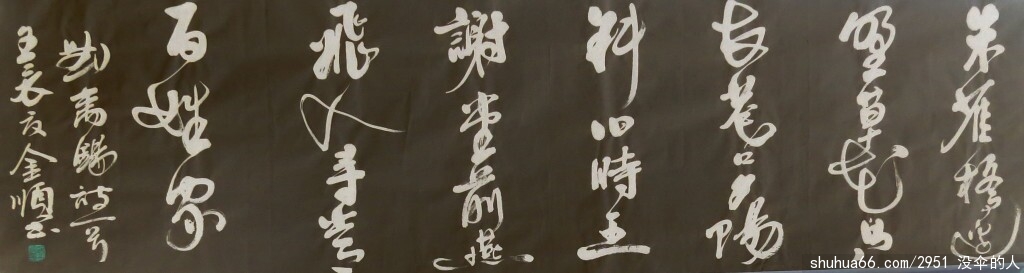 朱雀橋邊
野草花烏
衣巷口夕陽
斜旧時王
謝堂前燕
飛入寻常
百姓家
劉禹錫詩一首
壬辰夏金順书
shuhua66.com/2951 没伞的人